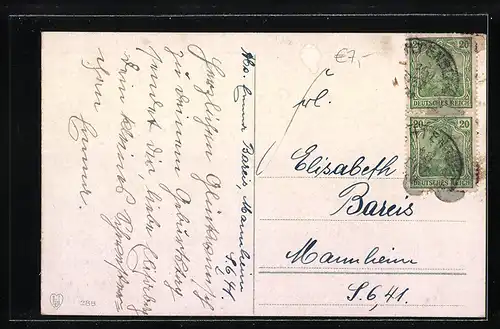 Abs. Emma Bareis, Mannheim
S.6.41.
Herzlichen Glückwunsch
zu Deinem Geburtstag
sendet Dir, liebe
Dein kleines
Emma.
€7,-
Frl.
Elisabeth
Bareis
Mannheim
S.6,41.
20
DEUTSCHES REICH
20
DEUTSCHES REICH
288